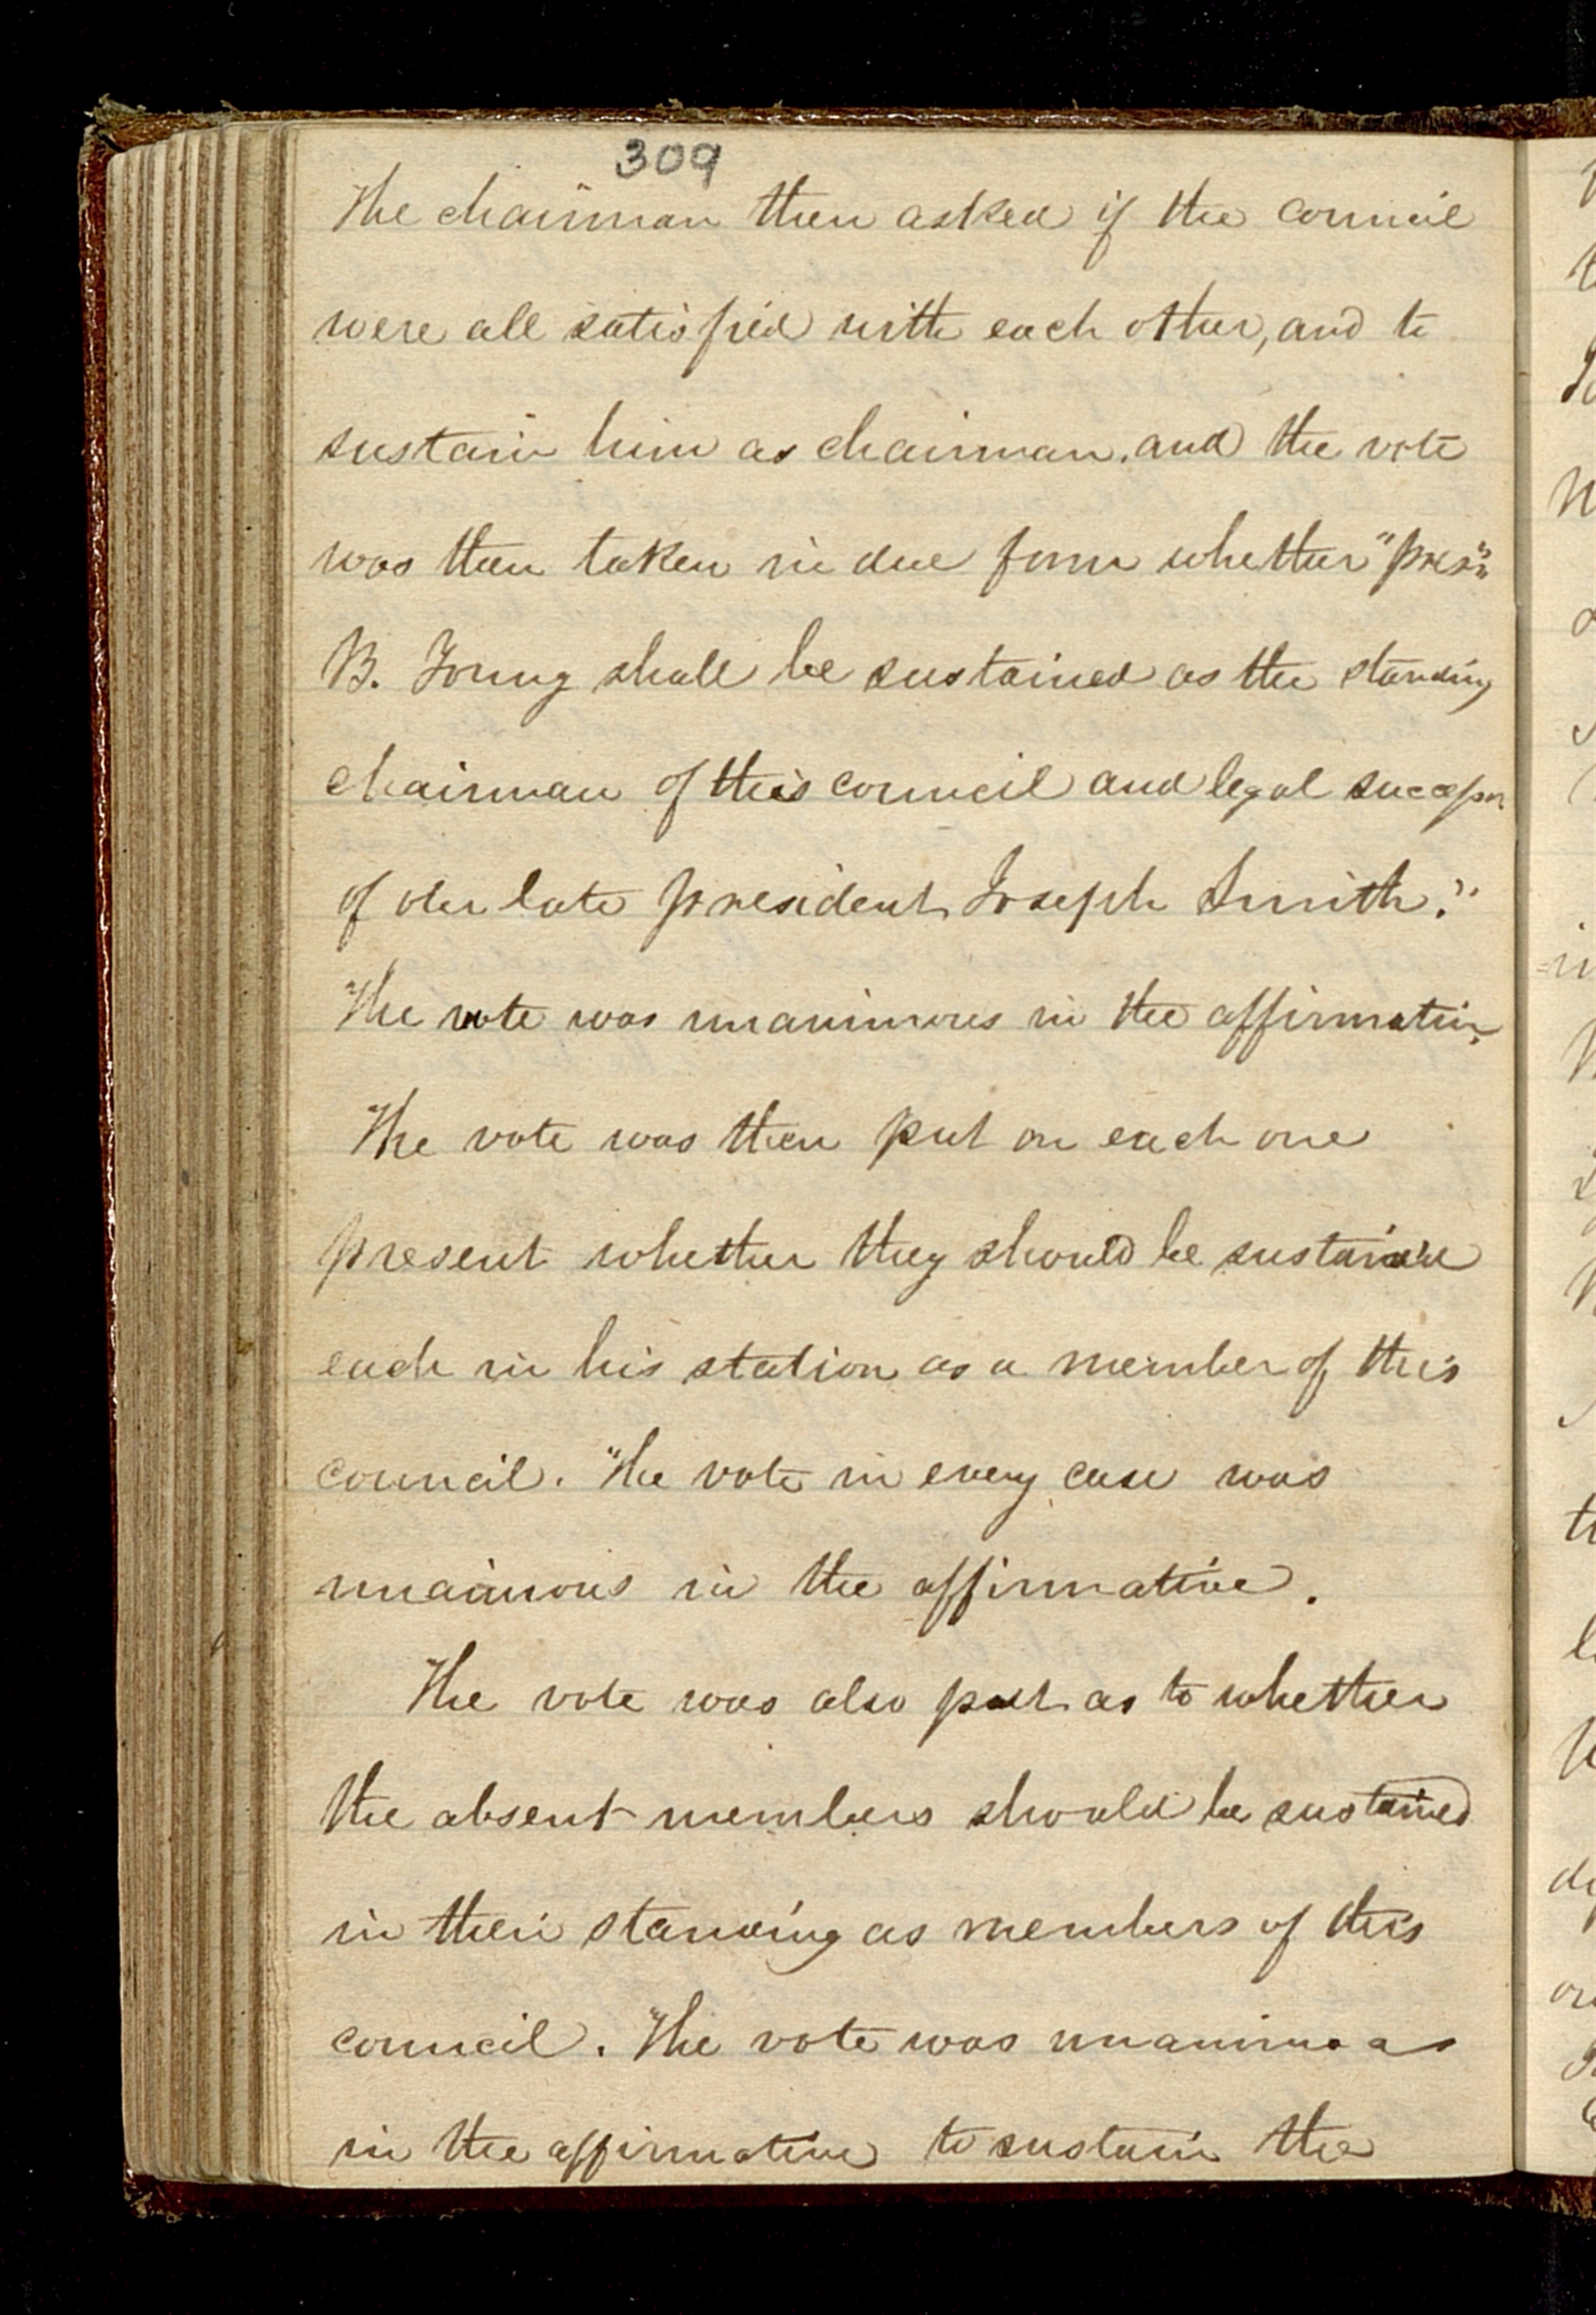 309
The chairman then asked if the council
were all satisfied with each other, and to
sustain him as chairman. and the vote
was then taken in due form whether "pres.
B. Young shall be sustained as the standing
chairman of this council and legal successor
of our late president Joseph Smith."
The vote was unanimous in the affirmative.
The vote was then put on each one
present whether they should be sustained
each in his station as a member of this
council. The vote in every case was
unainous in the affirmative.
The vote was also put as to whether
the absent members should be sustained
in their standing as members of this
council. The vote was unanimous
in the affirmative to sustain the